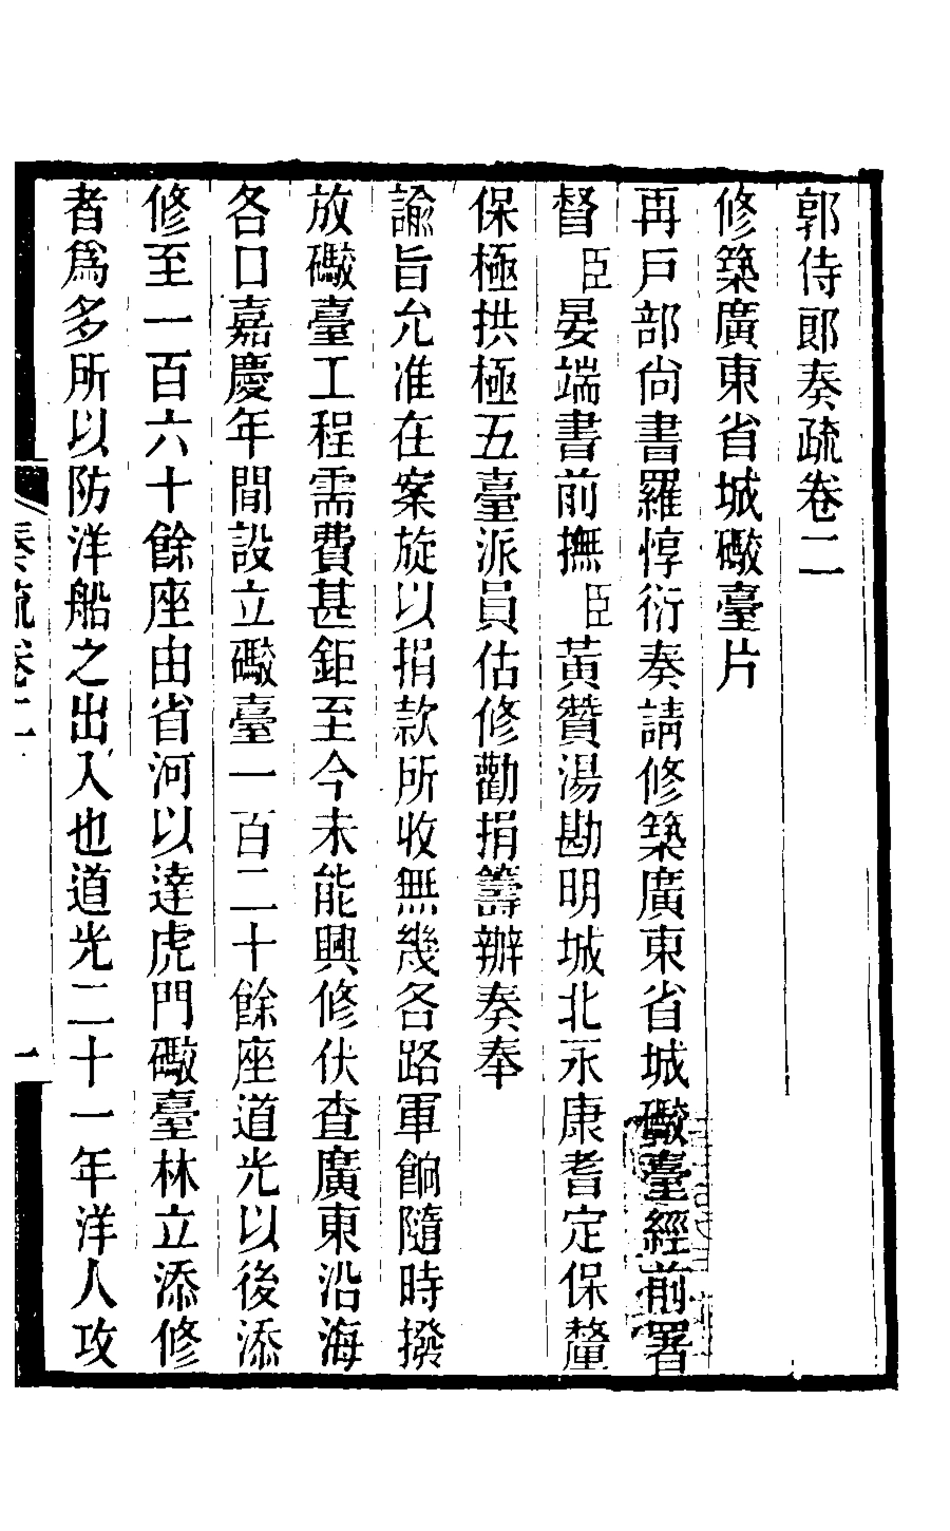 郭侍郎奏疏卷二
修築廣東省城礮臺片
再戶部尙書羅惇衍奏請修築廣東省城礮臺經前署
督臣晏端書前撫臣黃贊湯勘明城北永康耆定保釐
保極拱極五臺派員估修勸捐籌辦奏奉
諭旨允准在案旋以捐款所收無幾各路軍餉隨時撥
放礮臺工程需費甚鉅至今未能興修伏查廣東沿海
各口嘉慶年間設立礮臺一百二十餘座道光以後添
修至一百六十餘座由省河以達虎門礮臺林立添修
者爲多所以防洋船之出入也道光二十一年洋人攻
奏疏卷二
一